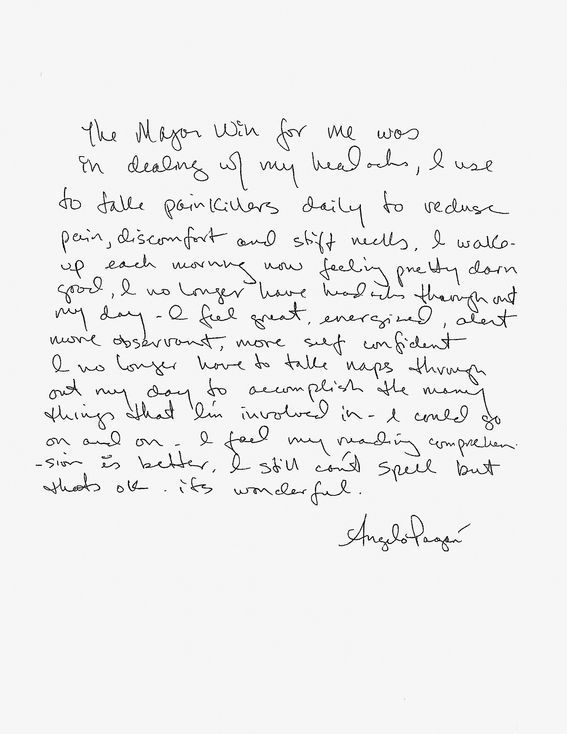 The Mayor Win for me was
in dealing w/ my headachs, I use
to take painkillers daily to reduse
pain, discomfort and stift necks. I wake-
up each morning now feeling pretty darn
good, I no longer have headachs through out
my day - I feel great, energized, alert
more observant, more self confident
I no longer have to take naps through
out my day to accomplish the many
things that I'm involved in - I could go
on and on - I feel my reading comprehen-
-sion is better. I still can't spell but
thats ok. its wonderful.
Angelo Pagán